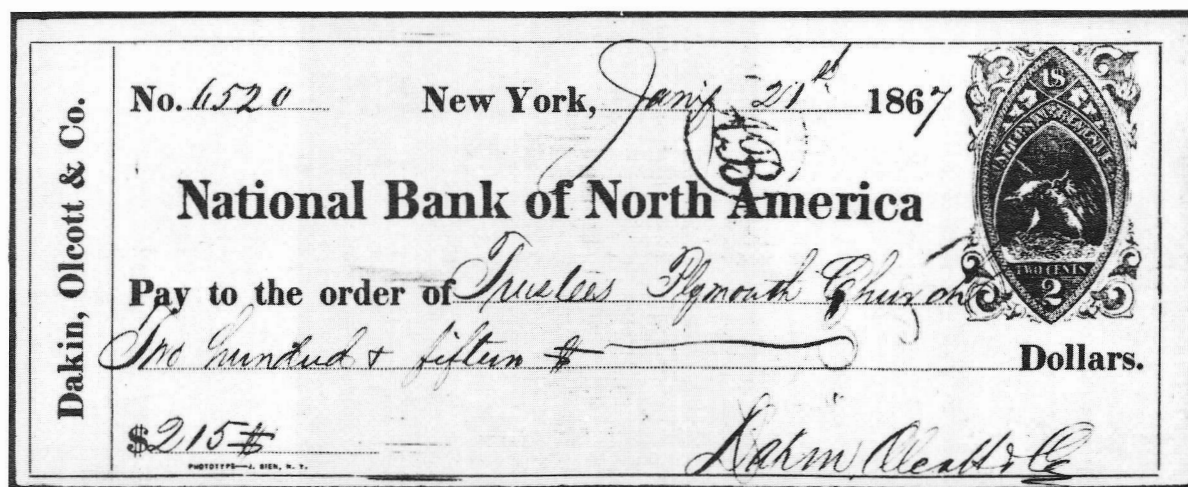 Dakin, Olcott & Co.
No. 6520 New York, Jan'y 21st 1867
US
INTERNAL REVENUE
TWO CENTS
2
National Bank of North America
Pay to the order of Trustees Plymouth Church
Two hundred & fifteen $ Dollars.
$215 $
PHOTOTYPE—J. BIEN, N. Y.
Dakin Olcott & Co